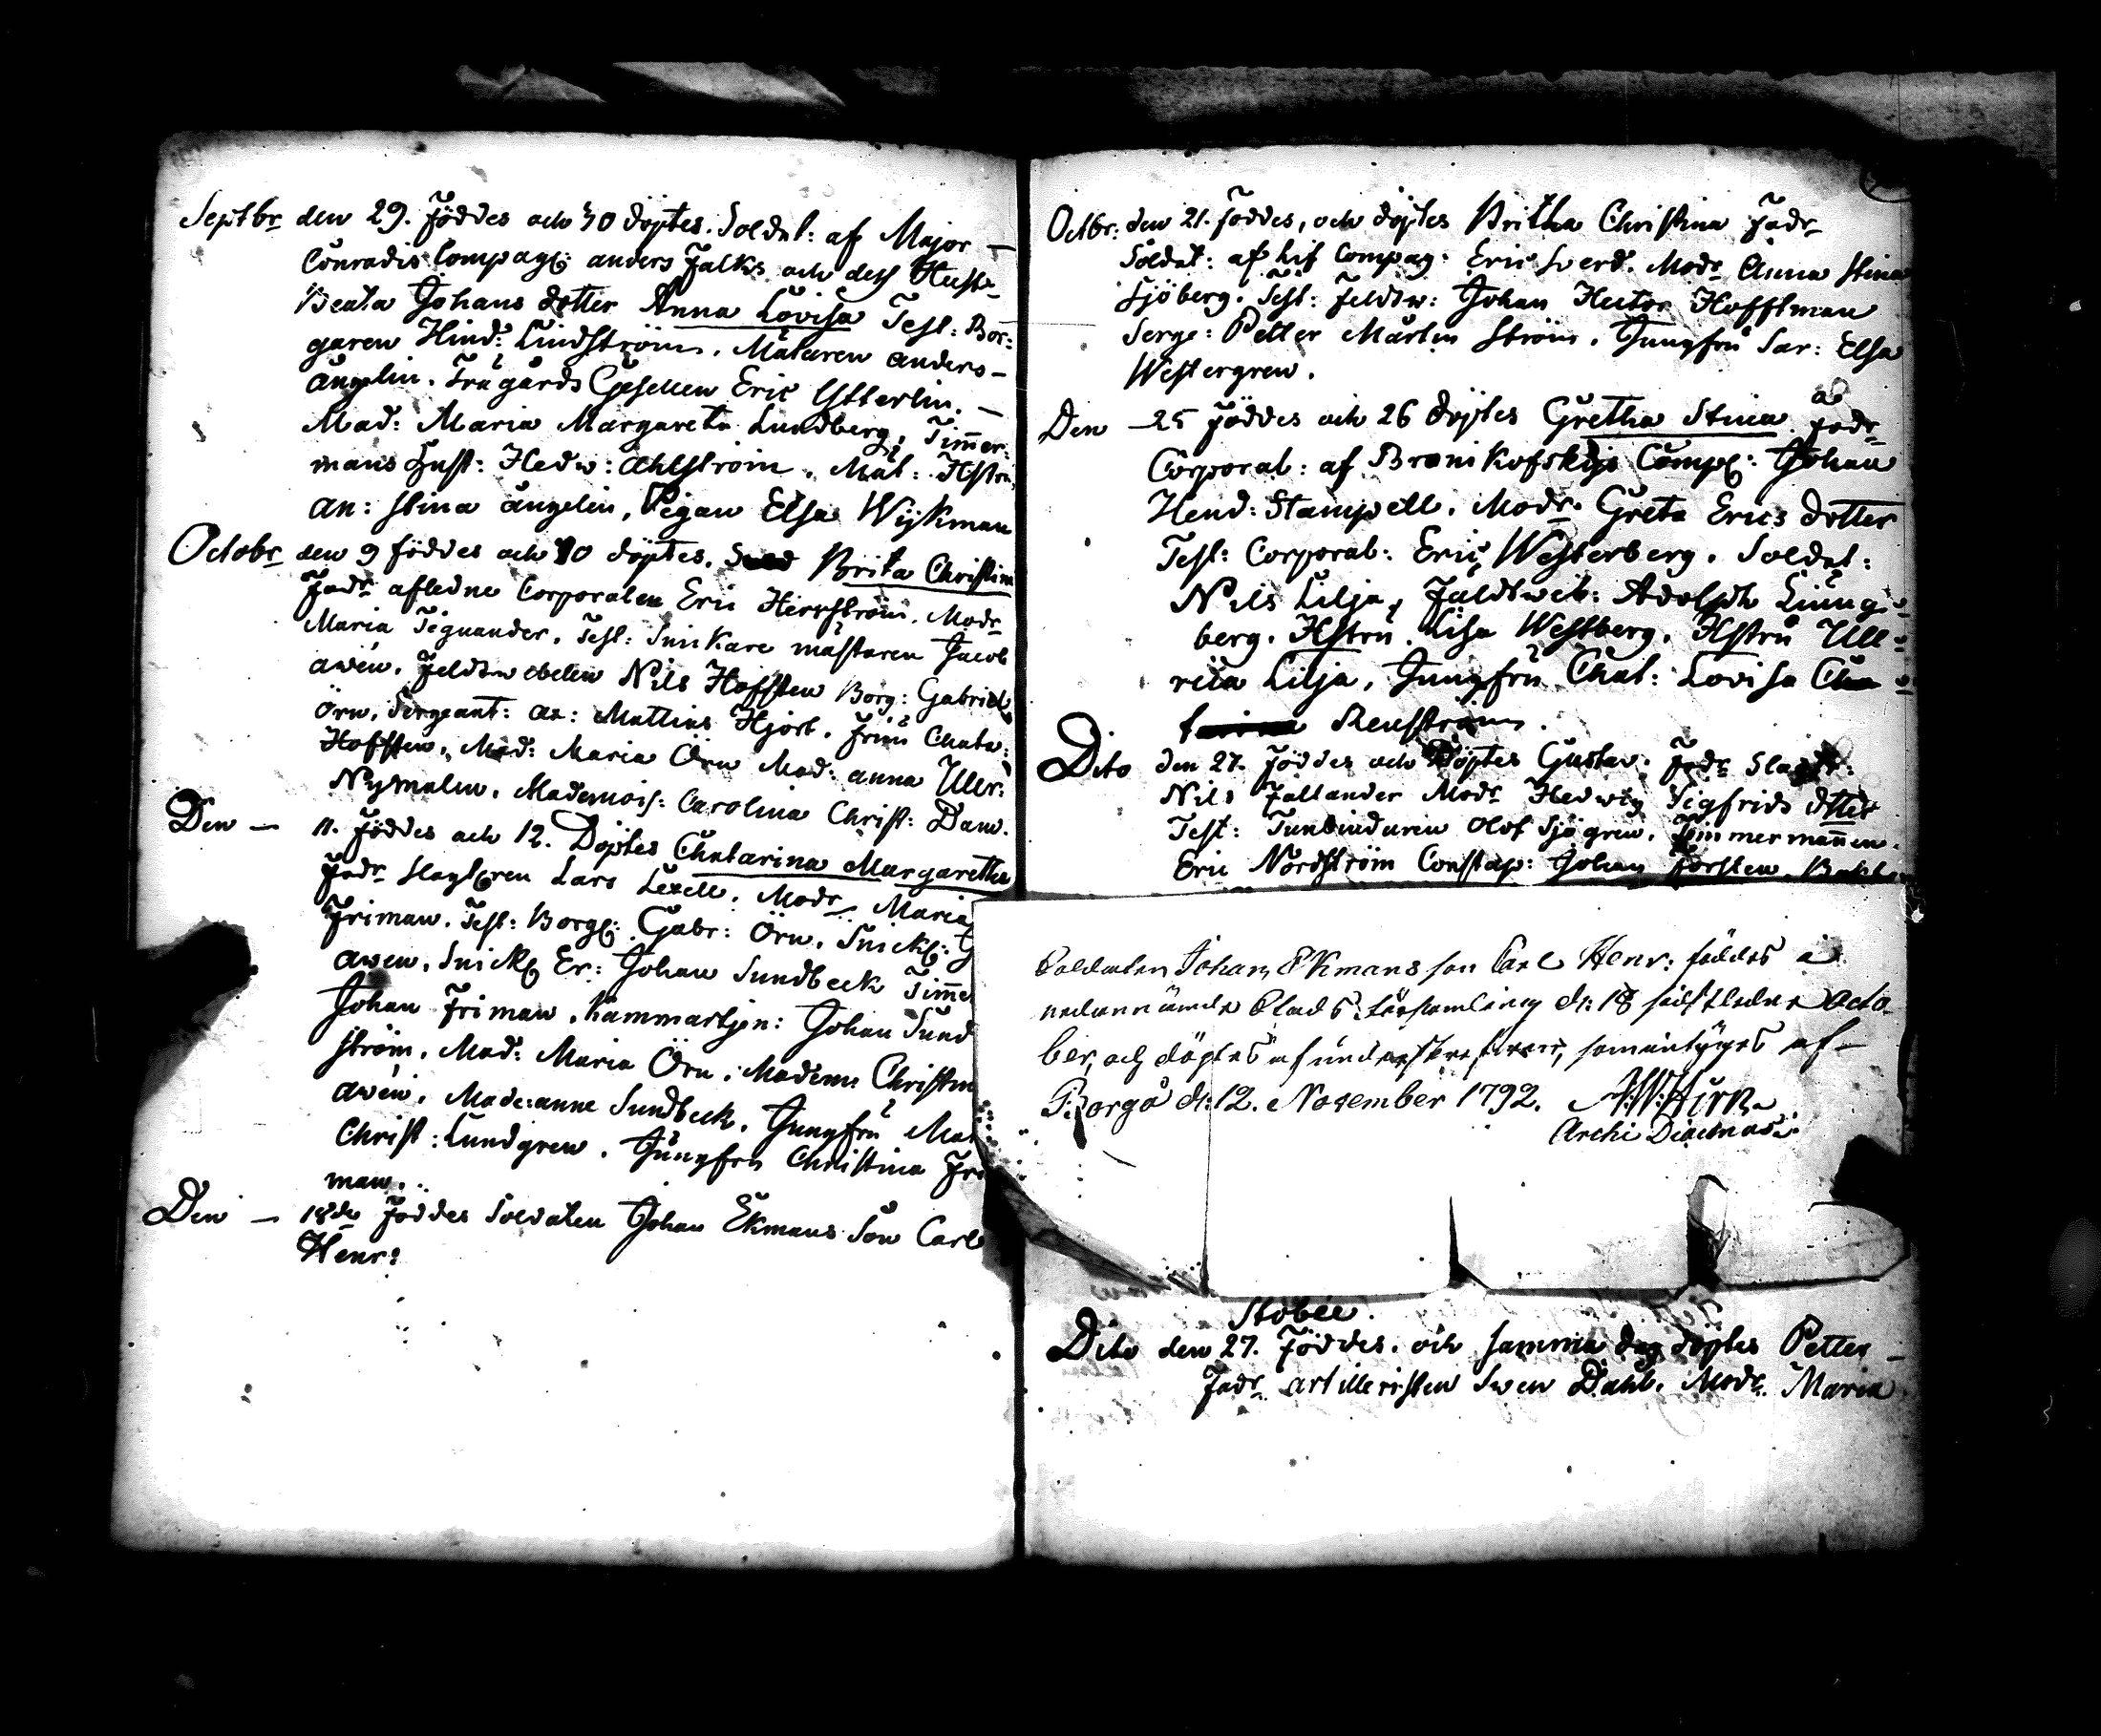 Septbr den 29. Föddes och 30 döptes. Soldat: af Major —
Conradis Compag: anders Falks och des Hustr
Beata Johans dotter Anna Lovisa Test: Bor:
garen Hind: Lindström. Målaren anders —
ängelin. Trägårds Gesellen Eric Ytterlin. —
Mad: Maria Margareta Lundberg, Tim̄er:
mans Hust: Hedw: Ahlström. Mål: Hstru
an: Stina ängelin, Pigan Elsa Wijkman
Octobr den 9 föddes och 10 döptes. Brita Christin
Fadr afledne Corporalen Eric Herrström. Modr
Maria Tegnander. Test: Snikare mästaren Jacob
awén. Feldtwebelen Nils Hoffsten Borg: Gabriel
Örn. Sergeant: Mattias Hjort. Fru Chata:
Hoffsten. Mad: Maria Örn Mad: anna Ullr:
Nymalm. Mademois: Carolina Christ: Dam.
Den — 11. Föddes och 12. Döptes Chatarina Margaretha
Fadr Slagt:ren Lars Lexell. Modr Maria
Friman. Test: Borg: Gabr: Örn. Snick:
awen. Snick: Er: Johan Sundbeck Tim̄e
Johan Friman. Johan Sund
ström. Mad: Maria Örn. Madem: Christin
awén. Made: anne Sundbeck. Jungfru Mar
Christ: Lundgren. Jungfru Christina Fri
man.
Den — 18de Föddes Soldaten Johan Ekmans Son Carl
Henr:
Octbr: den 21. Föddes, och döptes Britha Christina Fadr
Soldat: af Lif Compag: Eric Sverd. Modr Anna Stina
Sjöberg. Test: Feldtw: Johan Hector Hofftman
Serge: Petter Martin Ström. Jungfru Sar: Elsa
Westergren.
Den — 25 Föddes och 26 döptes Gretha Stina Fadr
Corporal: af Bronikofskijs Comp: Johan
Hend: Stampell. Modr. Greta Erics dotter
Test: Corporal: Eric Westerberg. Soldat:
Nils Lilja, Fäldtweb: Adolph Liung:
berg. Hstru Lisa Westberg. Hstru Ull:
rica Lilja, Jungfru Chat: Lovisa
Renström.
Dito den 27. Föddes och Döptes Gustav. Fadr Slagt:
Nils Fallander Modr Hedwig Sigfrids dtter
Test: Tunbindaren Olof Sjögren. Timmerman̄en.
Eric Nordström Constap: Johan Forsten
Soldaten Johan Ekmans son Carl Henr: föddes i
nedannämde Stads församling d: 18 sidstledne Octo
ber, och döptes af underskrefven, som intÿgas af —
Borgå d: 12. November 1792.
Archi Diaconus.
Stobée.
Dito den 27. Föddes. och samma dag döptes Petter —
Fadr artilleristen Swen Dahl. Modr. Maria